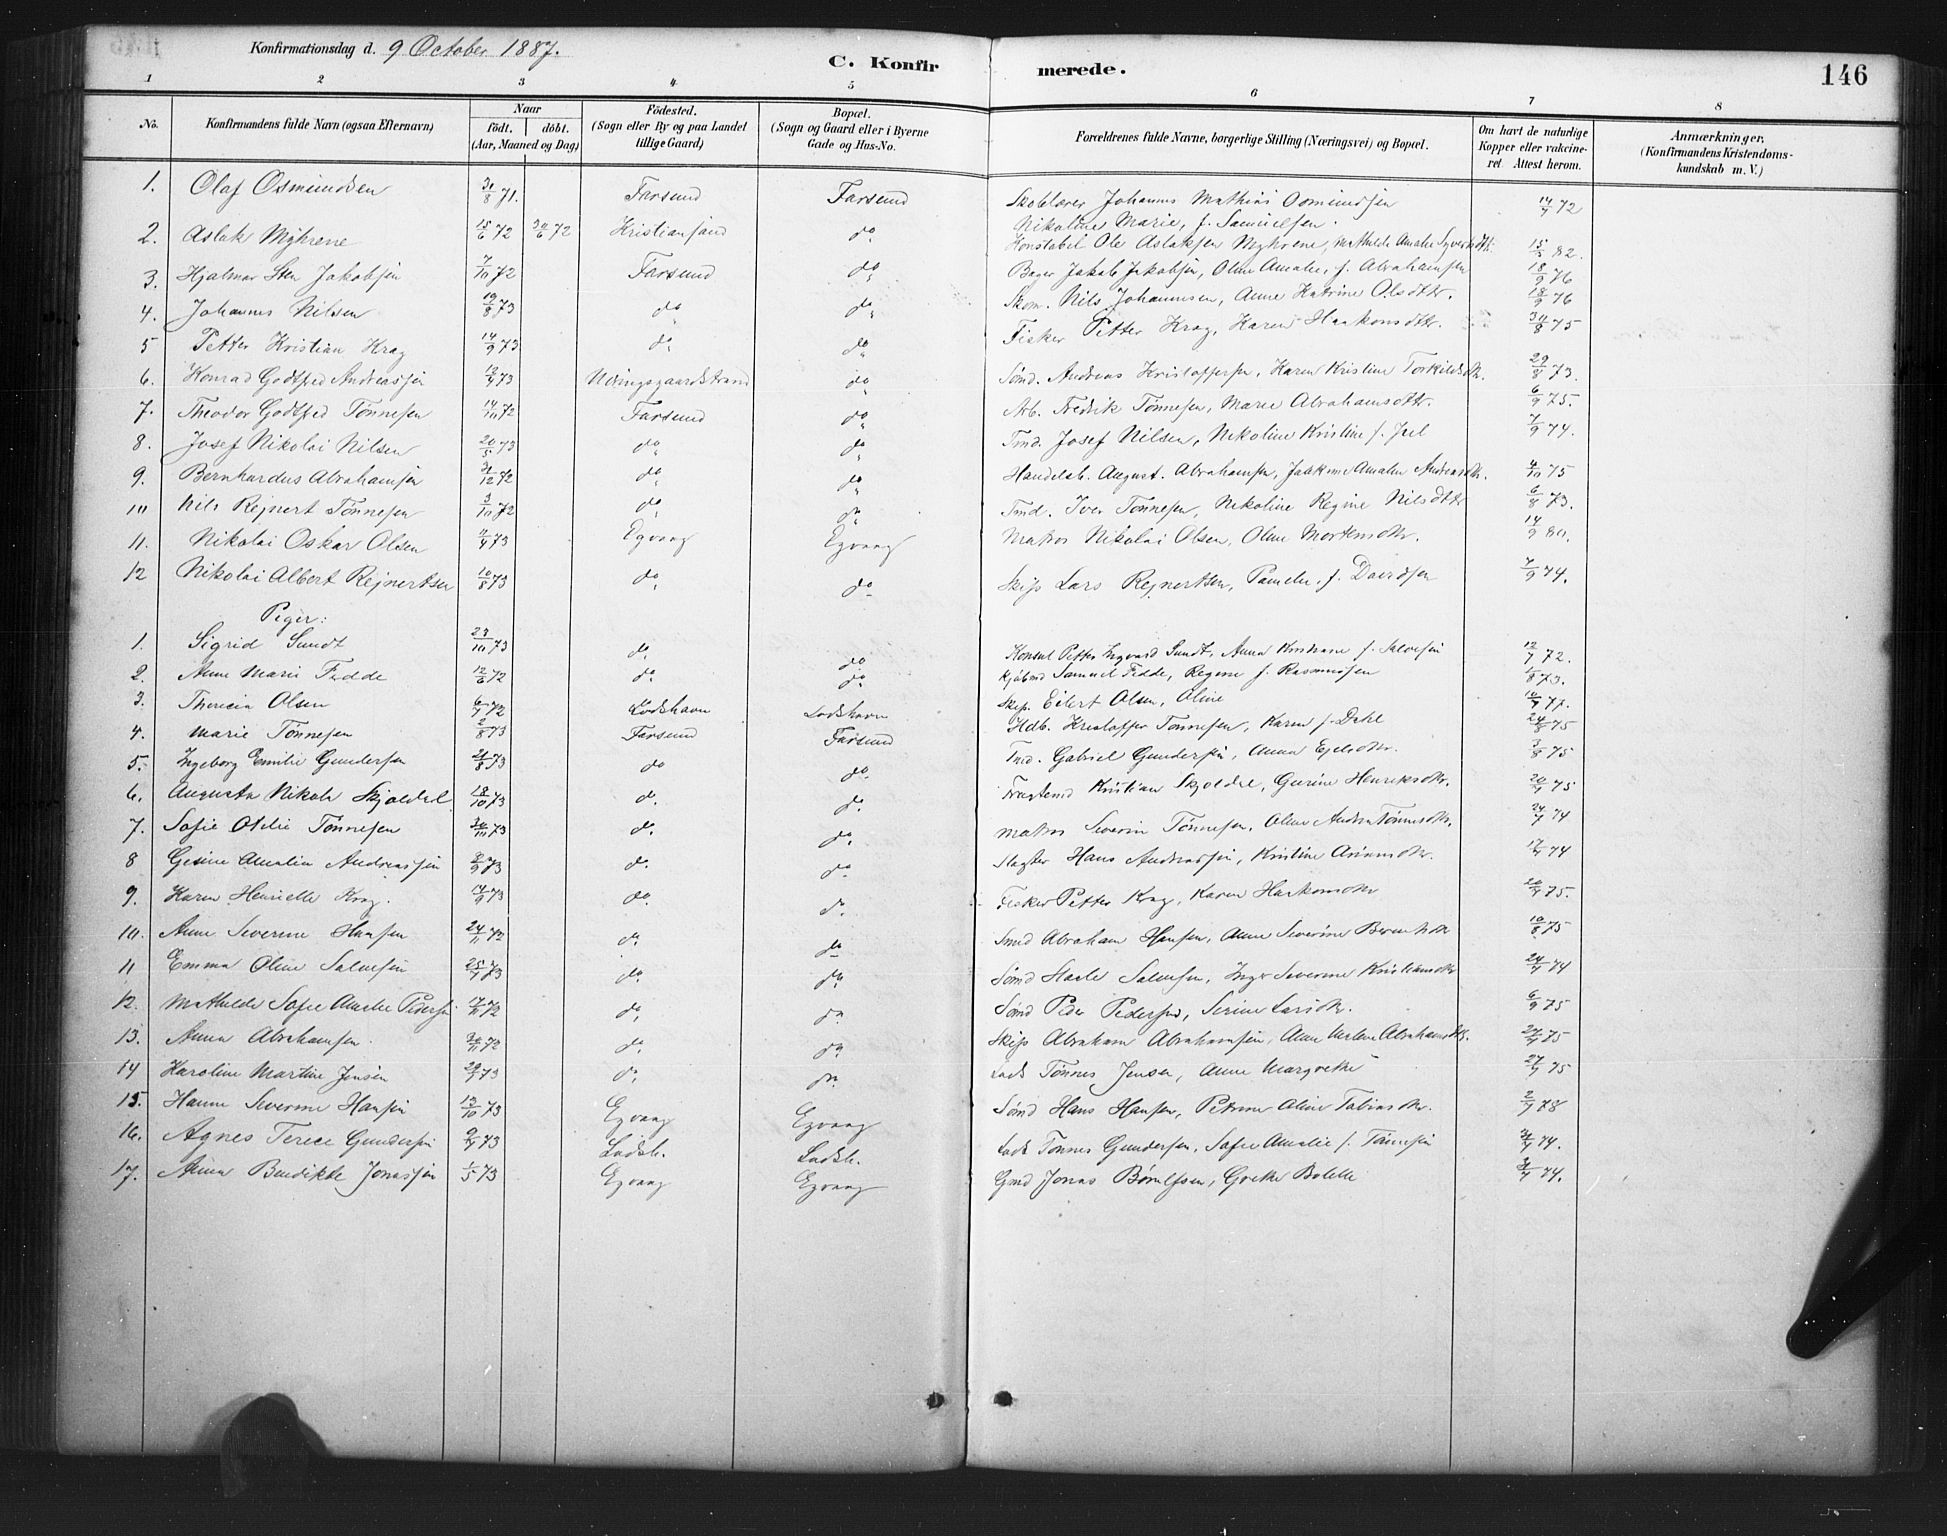 Konfirmationsdag d. 9 October 1887.
C. Konfirmerede.
146
1 2 3 4 5 6 7 8
No.
Konfirmandens fulde Navn (ogsaa Efternavn)
Naar
født. døbt.
(Aar, Maaned og Dag)
Fødested.
(Sogn eller By og paa Landet tillige Gaard)
Bopæl.
(Sogn og Gaard eller i Byerne Gade og Hus-No.
Forældrenes fulde Navne, borgerlige Stilling (Næringsvei) og Bopæl.
Om havt de naturlige Kopper eller vakcineret. Attest herom.
Anmærkninger,
(Konfirmandens Kristendomskundskab m. V.)
1. Olaf Osmundsen 31/8 71. Farsund Farsund Johannes Mathias Osmundsen 14/9 72
Nikoline Marie, f. Samuelsen.
2. Aslak Myhrene 15/6 72 30/6 72 Kristiansand do Konstabel Ole Aslaksen Myhrene, Mathilde Amalie 15/5 82.
3. Hjalmar Sten Jakobsen 7/10 72 Farsund do Bager Jakob Jakobsen, Oline Amalie, f. Abrahamsen 18/9 76
4. Johannes Nilsen 19/8 73 do do Skom. Nils Johannesen, Anne Katrine Olsdtr. 18/9 76
5 Petter Kristian Krag 14/9 73 do do Fisker Petter Krag, Karen Haakonsdtr. 75
6. Konrad Godtfred Andreassen 73 do Sømd. Andreas Kristoffersen, Karen Kristine Torkildsdtr. 29/8 73.
7. Theodor Godtfred Tønnesen 14/10 72 Farsund do Arb. Fredrik Tønnesen, Marie Abrahamsdtr. 6/9 75.
8. Josef Nikolai Nilsen 20/5 73 do do Tmd. Josef Nilsen, Nikoline Kristine f. Juel 7/9 74.
9. Bernhardus Abrahamsen 31/12 72 do do Handelsb. August Abrahamsen, Amalie Andreasdtr. 75
10 Nils Rejnert Tønnesen 3/10 72 do do Tmd. Iver Tønnesen, Nikoline Regine Nilsdtr 6/8 73.
11. Nikolai Oskar Olsen 73 Egvaag Egvaag Matros Nikolai Olsen, Oline Mortensdtr. 14/9 80.
12 Nikolai Albert Rejnertsen 10/8 73 do do Skips Lars Rejnertsen, f. Davidsen 7/9 74.
Piger:
1. Sigrid Sundt 23/10 73 do do Konsul Petter Ingvard Sundt, Anna f. Salvesen 12/7 72.
2. Anne Marie Fedde 12/6 72 do do Kjøbmd Samuel Fedde, Regine f. Rasmussen 73.
3. Thericia Olsen 6/7 72 Lodshavn Lodshavn Skip. Eilert Olsen, Oline 77.
4. Marie Tønnesen 2/8 73 Farsund Farsund Hdb. Kristoffer Tønnesen, Karen f. Dahl 75
5. Ingeborg Emilie Gundersen 21/8 73 do do Tmd. Gabriel Gundersen, Anna 75
6. Augusta Nikola Skjoldal 18/10 73 do do Kristian Skjoldal, Gurine Henriksdtr. 75
7. Sofie Otilie Tønnesen 73 do do Matros Severin Tønnesen, Oline Andrea Tønnesdtr. 74
8 Gesine Amalia Andreassen 73 do do Slagter Hans Andreassen, Kristine 74
9. Karen Henrielle Krag. 14/9 73 do do Fisker Petter Krag, Karen Haakonsdtr 75.
10. Anne Severine Hansen 24/11 72 do do Smed Abraham Hansen, Anne Severine 10/8 75
11 Emma Oline Salvesen 73 do do Sømd Salvesen, Inger Severine Kristiansdtr 74
12. Mathilde Sofie Amalie Pedersen 72 do do Sømd Peder Pedersen, Serine Larsdtr. 6/9 75
13. Anna Abrahamsen. 72 do do Skips Abraham Abrahamsen, Anne Abrahamsdtr. 75
14 Karoline Martine Jensen 73 do do Lods Tønnes Jensen, Anne Margrethe 75
15. Hanne Severine Hansen 13/10 73 Egvaag Egvaag Sømd Hans Hansen, Petrine Oline Tobiasdtr. 78
16. Agnes Terece Gundersen 73 Lodsh. Lodsh. Lods Tønnes Gundersen, Sofie Amalie f. Tønnesen 74.
17. Anna Bendikte Jonassen 1/5 73 Egvaag Egvaag Gmd Jonas Børulfsen, Grethe Bolette 74.